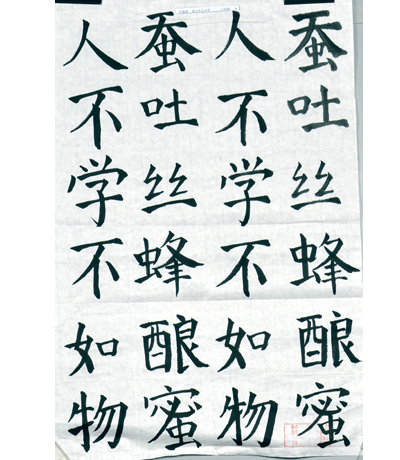 蚕吐丝蜂酿蜜
人不学不如物
蚕吐丝蜂酿蜜
人不学不如物